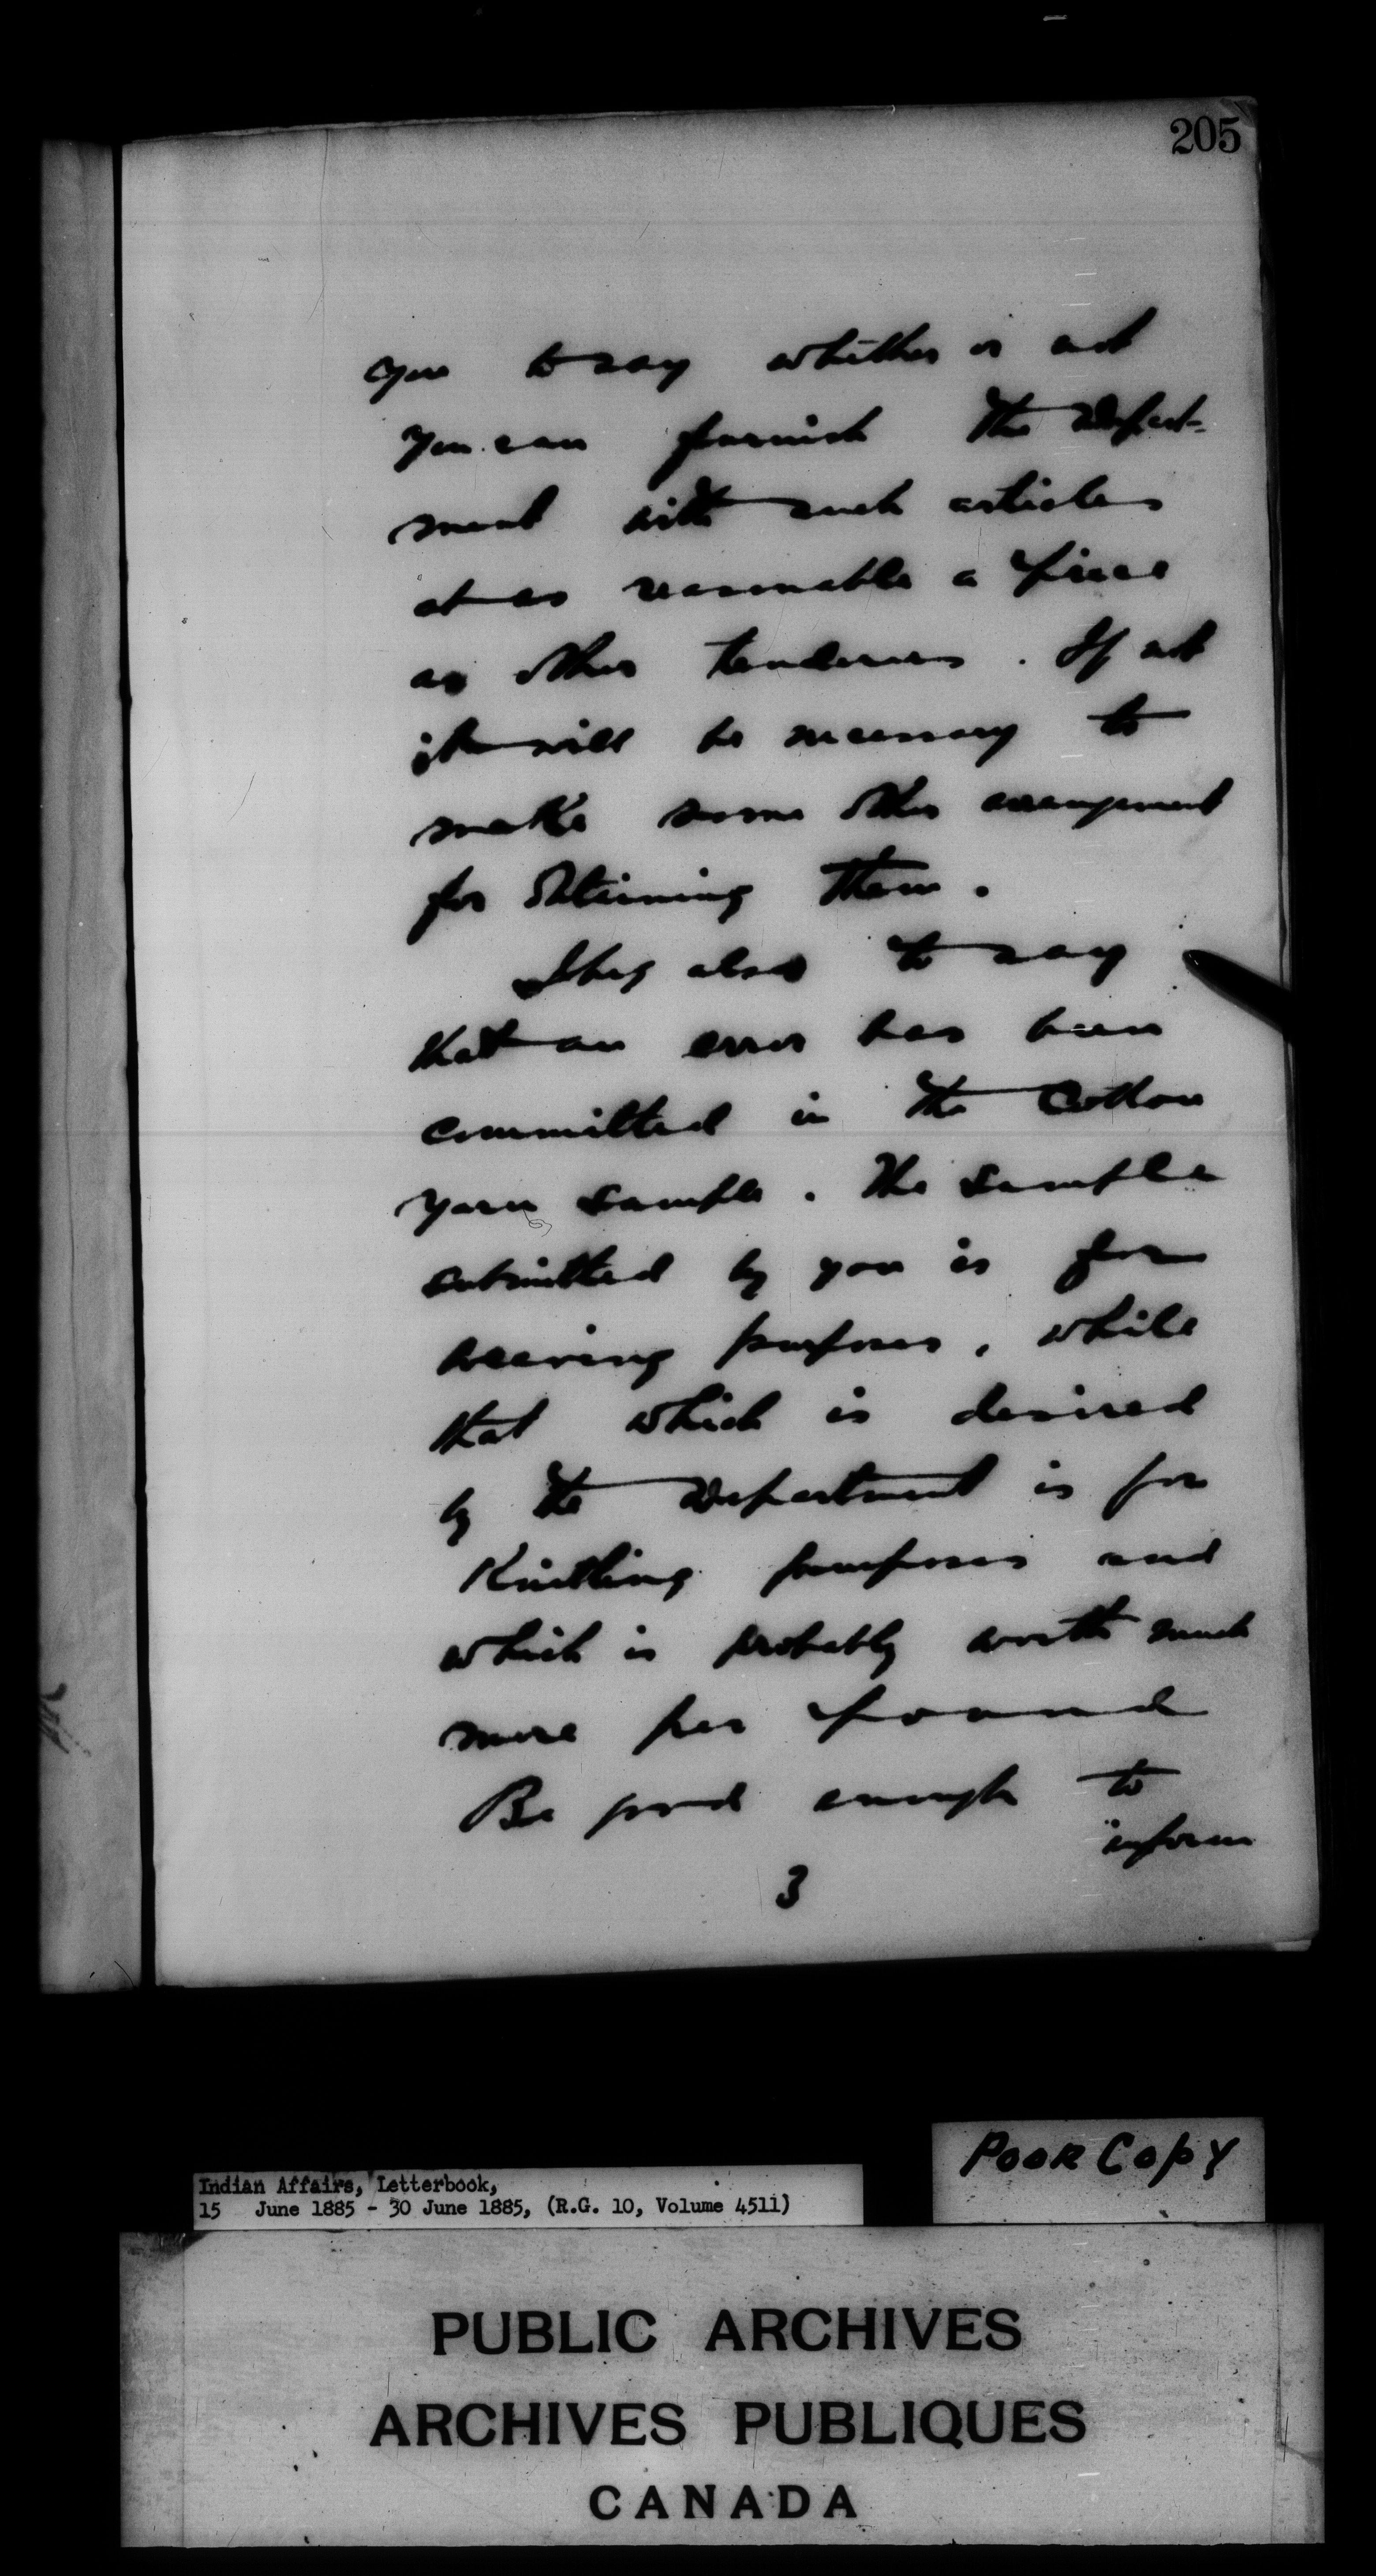 205
you to say whether or not
you can furnish the Depart-
ment with such articles
at as reasonable a price
as other tenderers. If not
it will be necessary to
make some other arrangement
for obtaining them.
I beg also to say
that an error has been
committed in the Cotton
yarn sample. The sample
submitted by you is for
weaving purposes, while
that which is desired
by the Department is for
Knitting purposes and
which is probably worth much
more per pound
Be good enough to
inform
3
Poor Copy
Indian Affairs, Letterbook,
15 June 1885 - 30 June 1885, (R.G. 10, Volume 4511)
PUBLIC ARCHIVES
ARCHIVES PUBLIQUES
CANADA